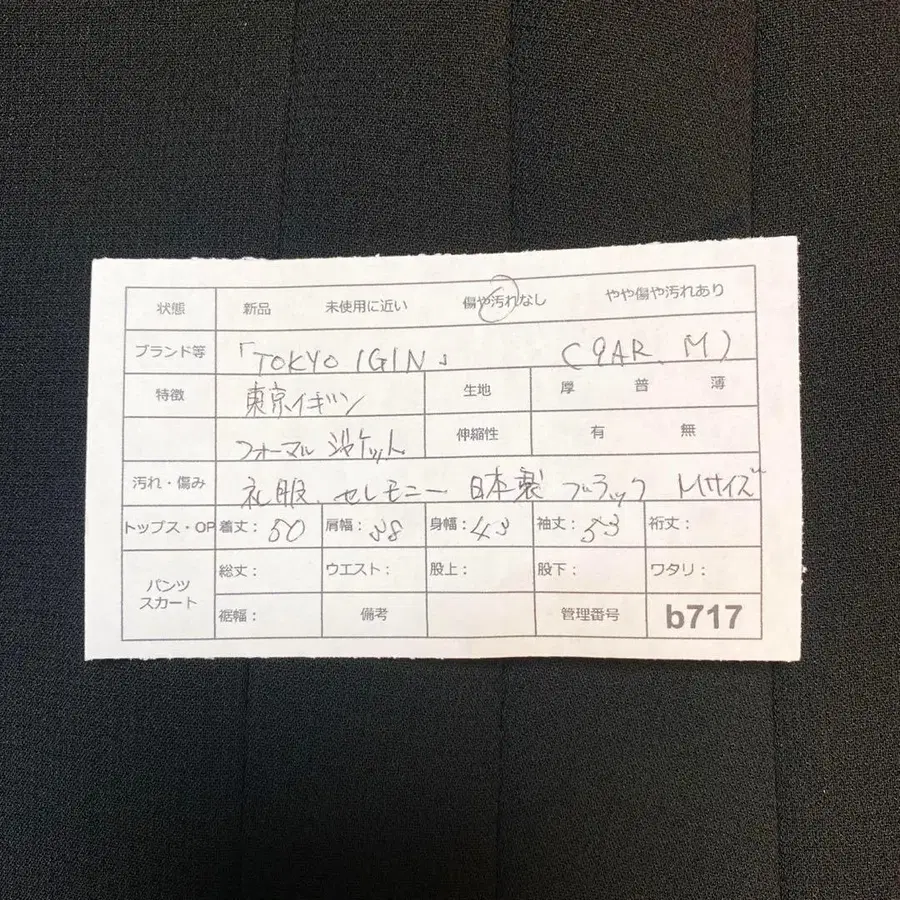 状態 新品 未使用に近い 傷や汚れなし やや傷や汚れあり
ブランド等 「TOKYO IGIN」 (9AR、M)
特徴 東京イギン 生地 厚 普 薄
フォーマル ジャケット 伸縮性 有 無
汚れ・傷み 礼服、セレモニー 日本製 ブラック Mサイズ
トップス・OP 着丈: 50 肩幅: 38 身幅: 43 袖丈: 53 裄丈:
パンツ スカート 総丈: ウエスト: 股上: 股下: ワタリ:
裾幅: 備考 管理番号 b717